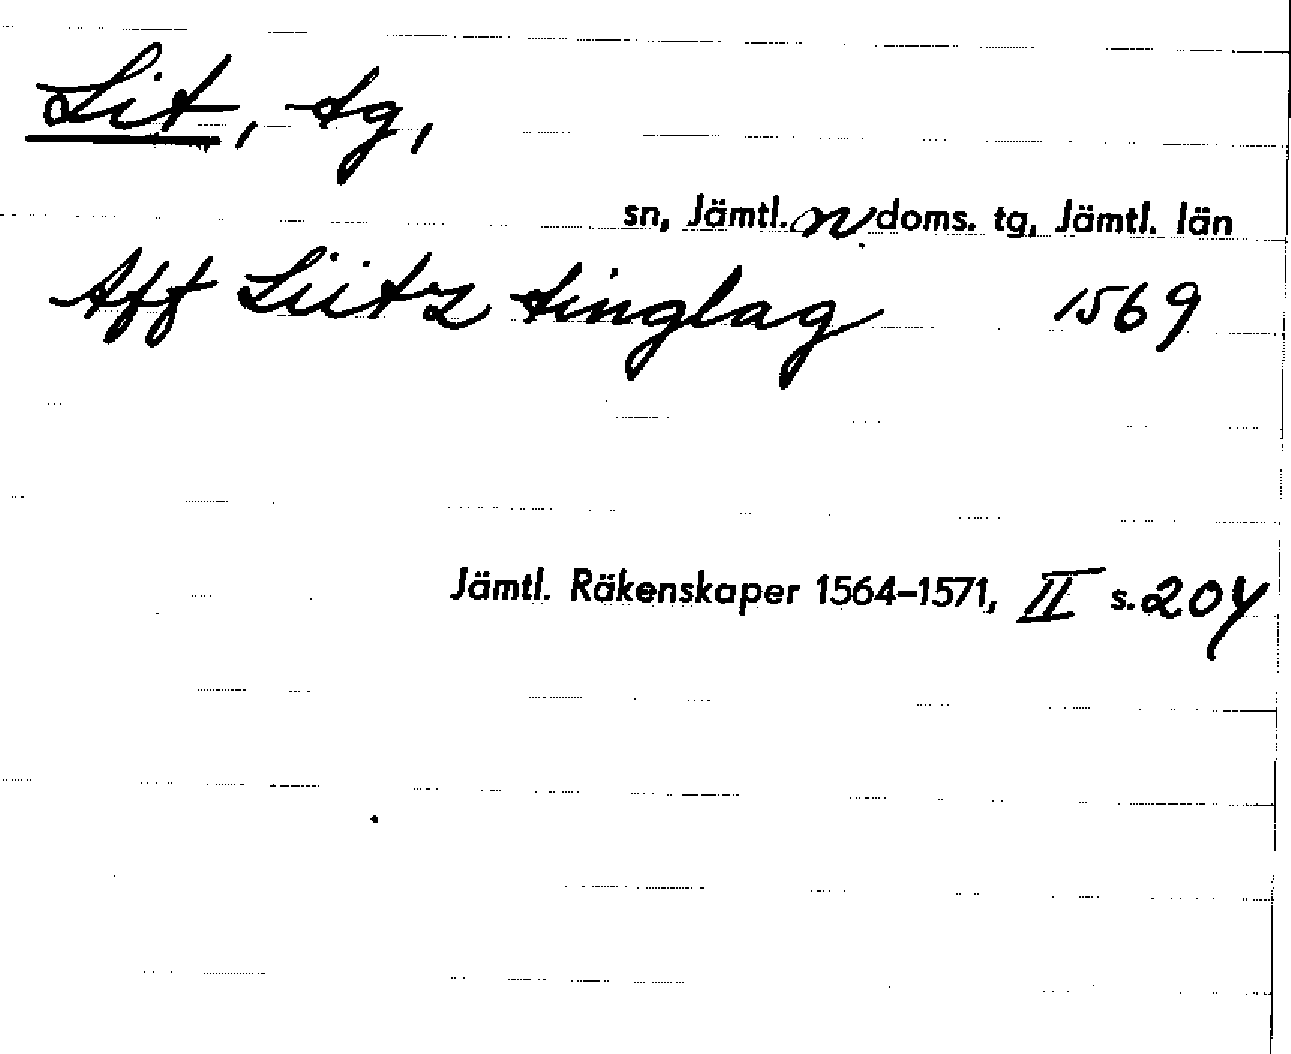 Lit, tg,
sn, Jämtl. n. doms. tg, Jämtl. län
Aff Liitz tinglag 1569
Jämtl. Räkenskaper 1564–1571, II s. 204